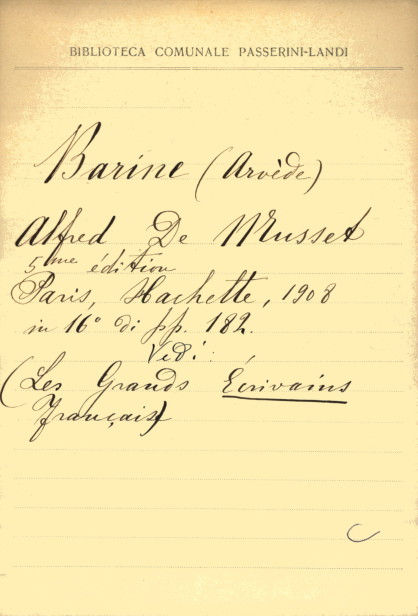 BIBLIOTECA COMUNALE PASSERINI-LANDI
Barine (Arvède)
Alfred De Musset
5me édition
Paris, Hachette, 1908
in 16° di pp. 182.
Vedi:
(Les Grands Écrivains
Français)